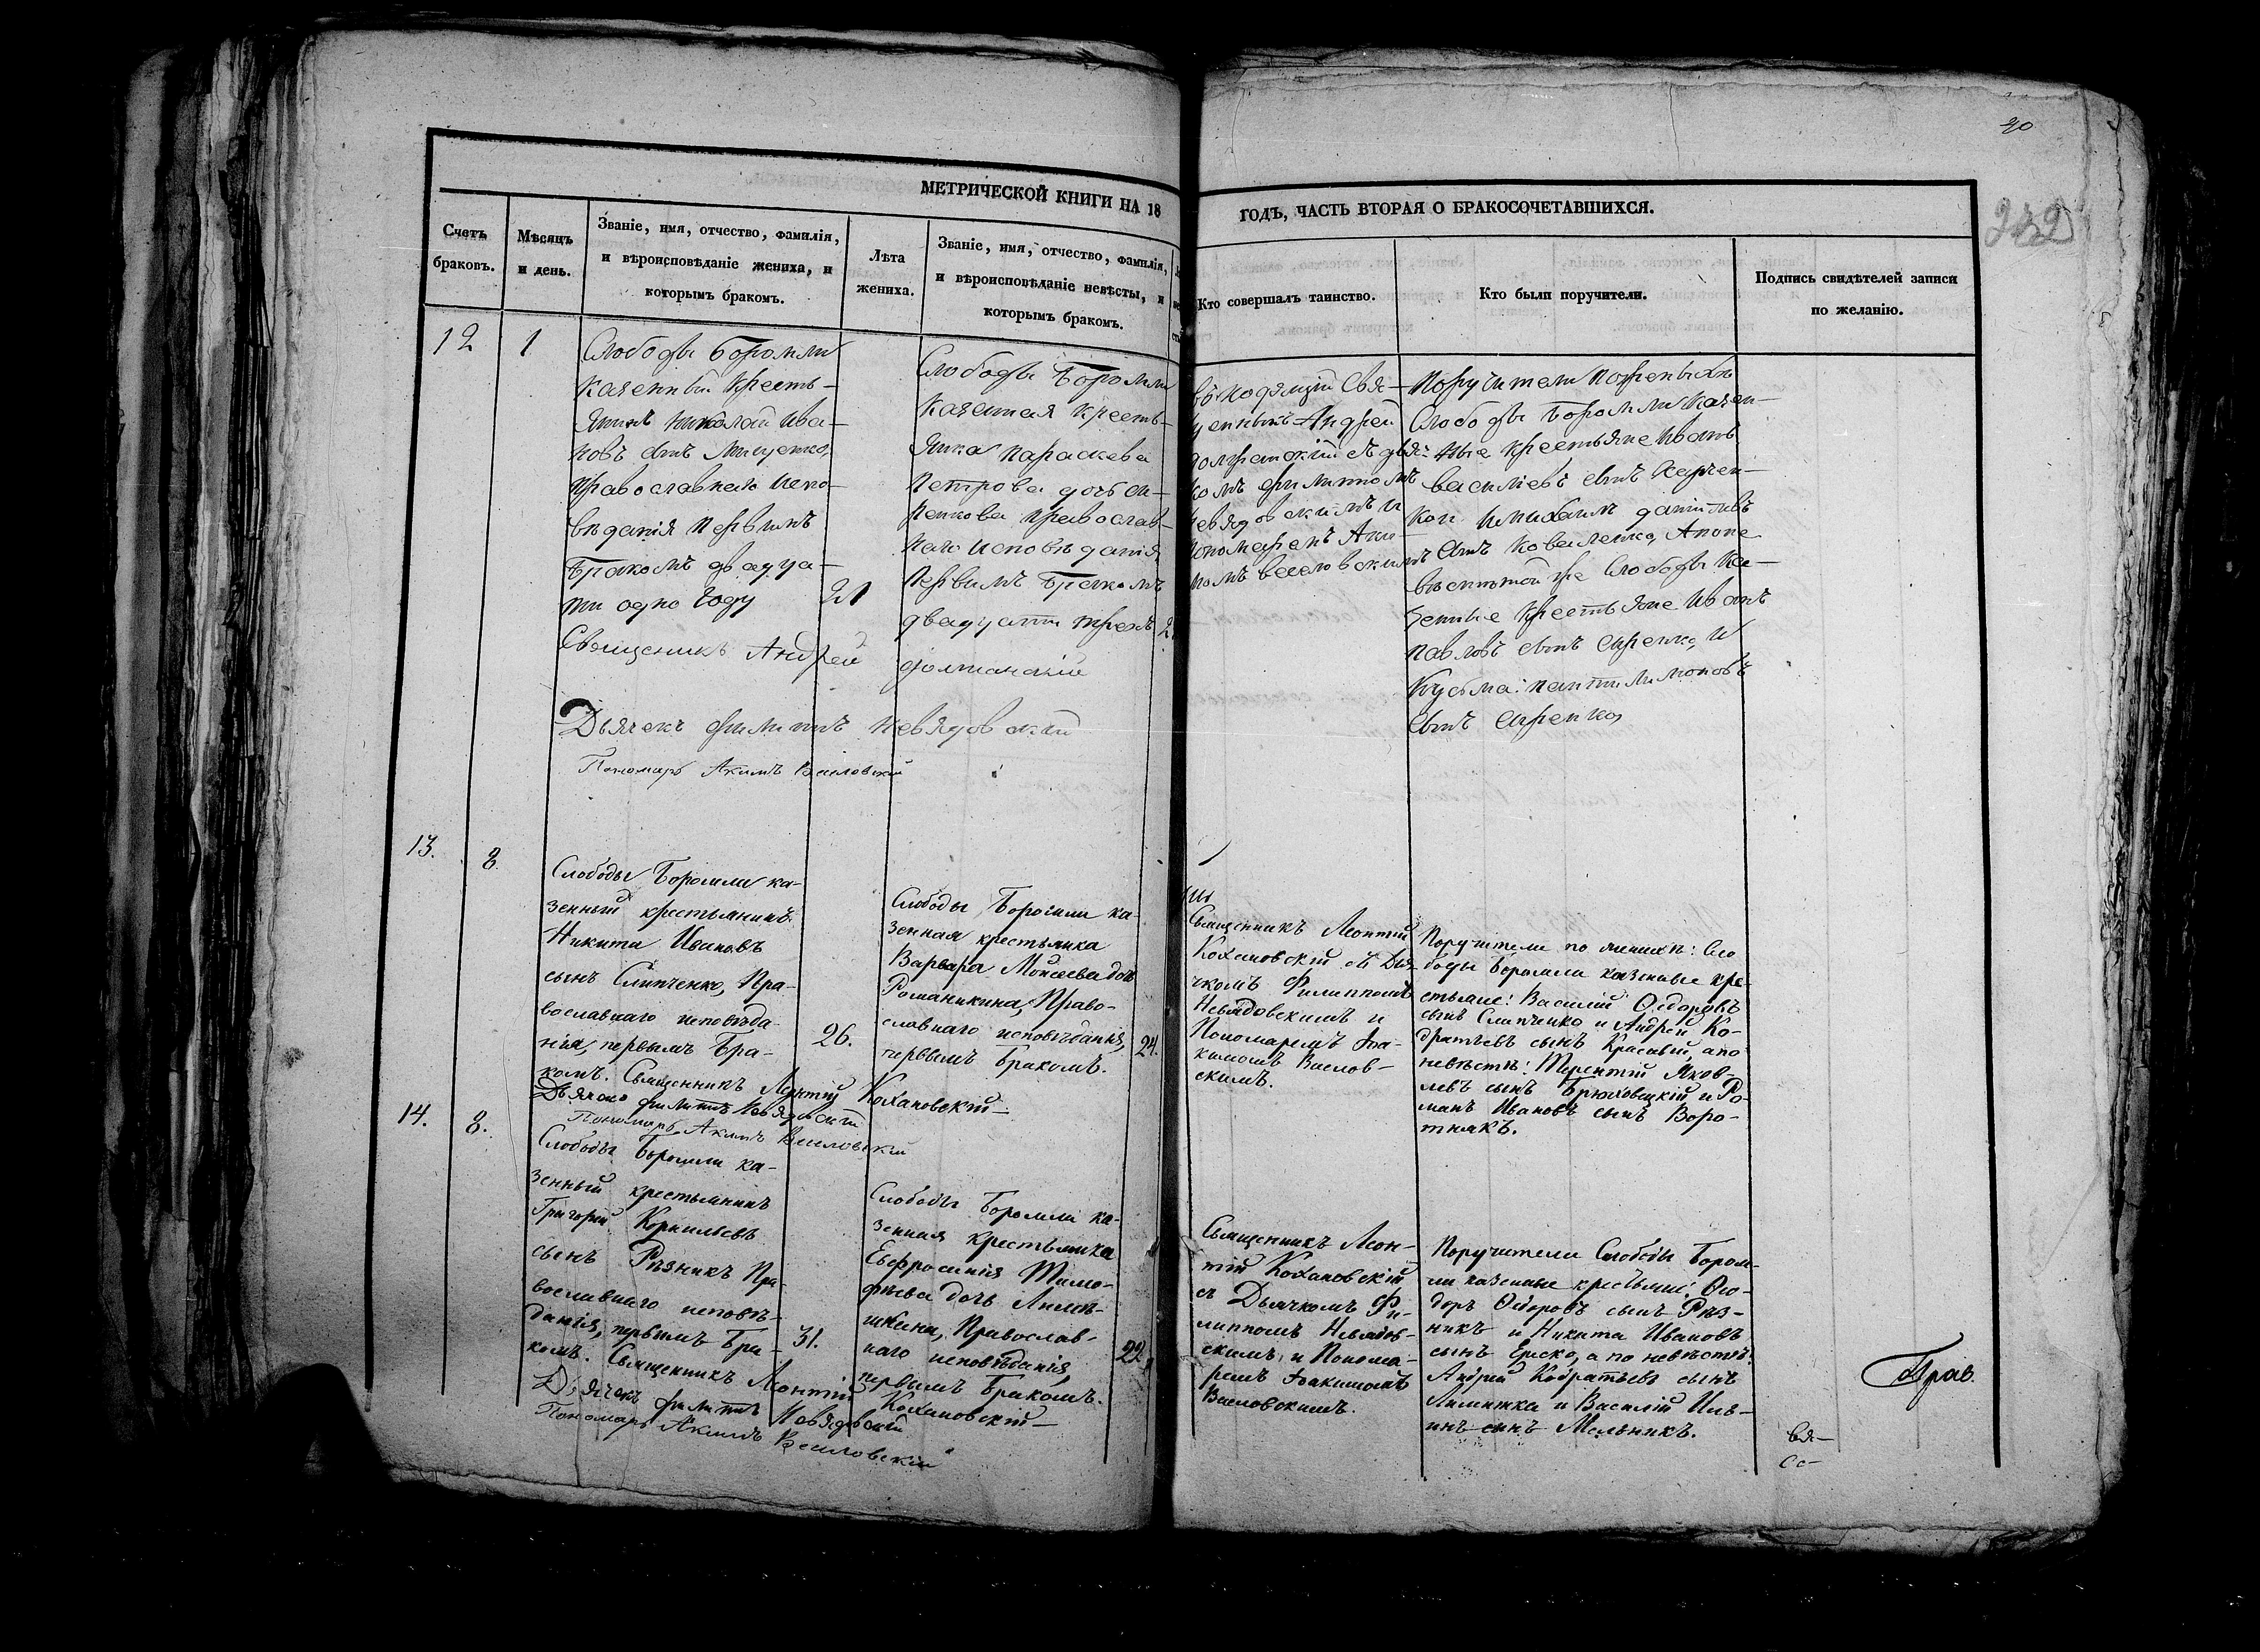 30
242
МЕТРИЧЕСКОЙ КНИГИ НА 18
ГОДЪ, ЧАСТЬ ВТОРАЯ О БРАКОСОЧЕТАВШИХСЯ.
Счетъ
браковъ.
Мѣсяцъ
и день.
Званіе, имя, отчество, фамилія,
и вѣроисповѣданіе жениха, и
которымъ бракомъ.
Лѣта
жениха.
Званіе, имя, отчество, фамилія,
и вѣроисповѣданіе невѣсты, и
которымъ бракомъ.
Кто совершалъ таинство.
Кто были поручители.
Подпись свидѣтелей записи
по желанію.
12
1
Слободы Боромли
казенный кресть-
янинъ Николай Ива-
новъ сынъ Мищенко,
православнаго испо-
вѣданія первымъ
бракомъ двадца-
ти одно году
21
Слободы Боромли
казенная кресть-
янка Параскева
Петрова дочь
православ-
наго исповѣданія
первымъ бракомъ
двадцати трехъ
Священникъ Андрей
Дьячекъ Филиппъ Невядовскій
Пономарь Акимъ Веселовскій
Свя-
Андрей
съ дья-
комъ Филиппомъ
и
Аки-
момъ Веселовскимъ
Поручители по женихѣ
Слободы Боромли казен-
ные крестьяне Иванъ
Васильевъ сынъ Харчен-
ко и
сынъ Коваленко, а по не-
вѣстѣ той же Слободы ка-
зенные крестьяне Иванъ
Павловъ сынъ и
Кузьма
сынъ
13.
8.
Слободы Боромли ка-
зенный крестьянинъ
Никита Ивановъ
сынъ Слипченко, Пра-
вославнаго исповѣда-
нія, первымъ бра-
комъ. Священникъ Леонтій Кохановскій
26.
Дьячекъ Филиппъ Невядовскій
Пономарь Акимъ Веселовскій
Слободы Боромли ка-
зенная крестьянка
Варвара Моисеева дочь
Романикина, Право-
славнаго исповѣданія,
первымъ бракомъ.
24.
Священникъ Леонтій
Кохановскій съ Дья-
чкомъ Филиппомъ
Невядовскимъ и
Пономаремъ Іоа-
кимомъ Веселов-
скимъ.
Поручители по женихѣ: Сло
боды Боромли казенные кре-
стьяне: Василій Ѳедоровъ
сынъ Слипченко и Андрей Ко-
дратьевъ сынъ Красный, а по
невѣстѣ: Терентій Яков-
левъ сынъ Брюховецкій и Ро-
манъ Ивановъ сынъ Воро-
тнякъ.
14.
8.
Слободы Боромли ка-
зенный крестьянинъ
Григорій Корнильевъ
сынъ Рѣзникъ Пра-
вославнаго исповѣ-
данія, первымъ бра-
комъ. Священникъ Леонтій Кохановскій
31.
Дьячекъ Филиппъ Невядовскій
Пономарь Акимъ Веселовскій
Слободы Боромли ка-
зенная крестьянка
Евфросинія Тимо-
фѣева дочь
Православ-
наго исповѣданія
первымъ бракомъ.
22
Священникъ Леон-
тій Кохановскій
съ Дьячкомъ Фи-
липпомъ Невядов-
скимъ и Понома-
ремъ Іоакимомъ
Веселовскимъ.
Поручители Слободы Бором-
ли казенные крестьяне: Ѳео-
доръ Ѳедоровъ сынъ Рѣз-
никъ и Никита Ивановъ
сынъ а по невѣстѣ:
Андрей Кодратьевъ сынъ
и Василій Иль-
инъ сынъ Мельникъ.